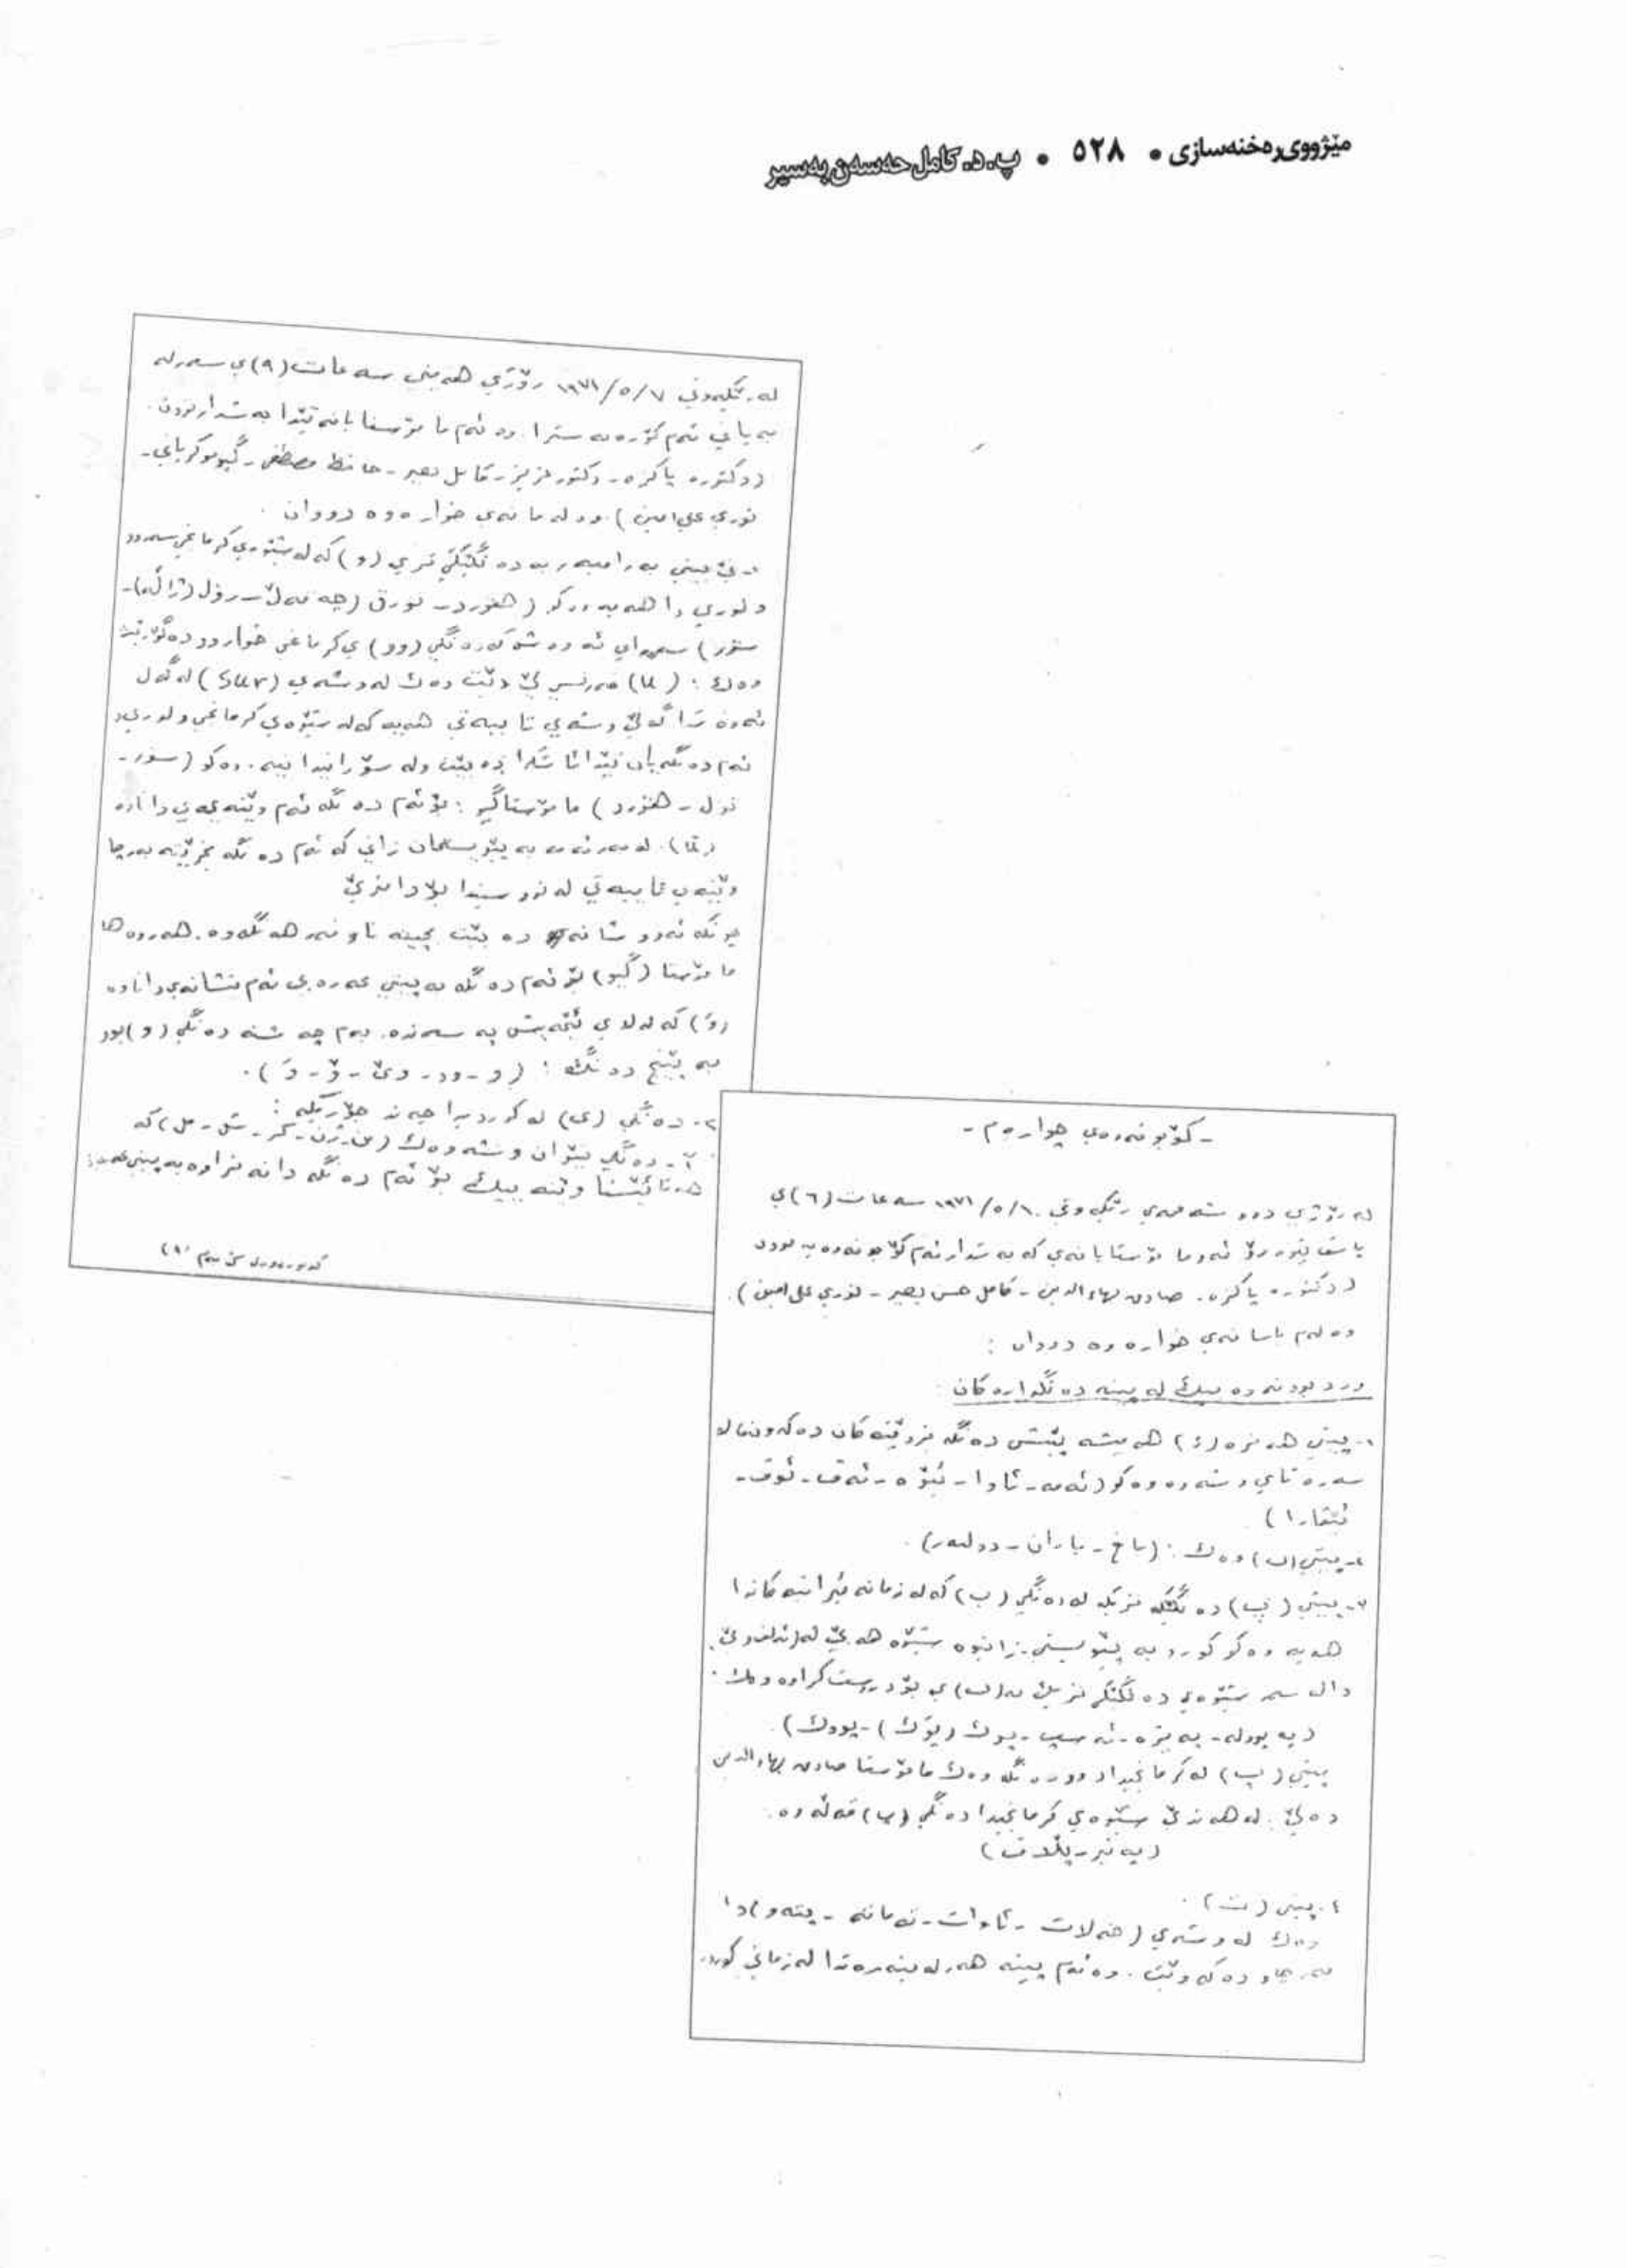 مێژووی ڕەخنەسازی • ٥٢٨ • پ.د. کامل حەسەن بەسیر
لە ڕێکەوتی ١٩٧١/٥/٧ ڕۆژی هەینی سەعات (٩)ی سەرلە
بەیانی ئەم کۆڕە بەسترا. وە ئەم مامۆستایانە تێدا بەشداربوون.
(دکتۆرە پاکزە - دکتور عزیز - کامل بصیر - حافظ مصطفی - گیو موکریانی -
نوری علي امین) وە لەمانەی خوارەوە دووان.
١- پیتی بەرامبەر بە دەنگێکی تری (و) کە لە شێوەی کرمانجی سەروو
و لوری دا هەیە وەکو (
سۆر) سەرەڕای ئەوەش کە دەنگی (وو)ی کرمانجی خواروو دەگۆڕێت
وەک: (u) فەرنسی لێ دێت وەک لە وشەی (sur) لەگەل
ئەوەشدا گەلێ وشەی تایبەتی هەیە کە لە شێوەی کرمانجی و لوری
ئەم دەنگەیان تێدا ئاشکرا دەبێت ولە سۆرانیدا نییە. وەکو (سور -
مامۆستا گیو: بۆ ئەم دەنگە ئەم وێنەیەی داناوە
لەبەرئەمە بە پێویستمان زانی کە ئەم دەنگە بخرێتە بەرچاو
وێنەی تایبەتی لە نووسیندا بۆ دابنرێ
چونکە ئەو وشانە دەبێت بچینە ناو فەرهەنگەوە. هەروەها
مامۆستا (گیو) بۆ ئەم دەنگە بە پیتی عەرەبی ئەم نیشانەی داناوە
(وَ) کە لەلای ئێمەیش پەسەندە. بەم چەشنە دەنگی (و) بوو
بە پێنج دەنگ: (و - وو - وێ - ۆ - وَ).
٢- دەنگی (ی) لە کوردیدا چەند جۆرێکە:
آ- دەنگی نێوان وشە وەک (من - ژن - کر - شل - مل) کە
هەتا ئێستا وێنە پیتێک بۆ ئەم دەنگە دانەنراوە بە پیتی
- کۆبوونەوەی چوارەم -
لە ڕۆژی دوو شەممەی ڕێکەوتی ١٩٧١/٥/١٠ سەعات (٦)ی
پاش نیوەڕۆ ئەو مامۆستایانەی کە بەشداری ئەم کۆبوونەوەیە بوون
(دکتۆرە پاکزە - صادق بهاءالدین - کامل حسن بصیر - نوري علی امین).
وە لەم باسانەی خوارەوە دووان:
ورد بوونەوە یێک لە پیتە دەنگدارەکان
١- پیتی هەمزە (ئ) هەمیشە پێش دەنگە بزوێنەکان دەکەوێتە
سەرەتای وشەوە وەکو (ئەمە - ئاوا - ئێوە - ئەف - ئوف -
ئێقارا)
٢- پیتی (ب) وەک: (باخ - باران - دولبەر).
٣- پیتی (پ) دەنگێکە نزیکە لە دەنگی (ب) کە لە زمانە ئێرانیەکاندا
هەیە وەکو کورد بە پێویستی زانیوە شێوە هەبێ لە
دال سەر شێوەی دەنگێکی نزیک لە (ب)ی بۆ دروست کراوە وەک:
(پەپوولە - پەیژە - ئەسپ - پوک (پۆک) - پووک).
پیتی (پ) لە کرمانجیدا دوو دەنگە وەک مامۆستا صادق بهاءالدین
دەڵێ: لە هەندێ شێوەی کرمانجیدا دەنگی (پ) قەڵەوە.
(پەنیر - پڵاف)
٤- پیتی (ت).
وەک لە وشەی (خەلات - ئاوات - تەماتە - پتەو) دا
بەرچاو دەکەوێت. وە ئەم پیتە هەر لە بنەڕەتدا لە زمانی کورد